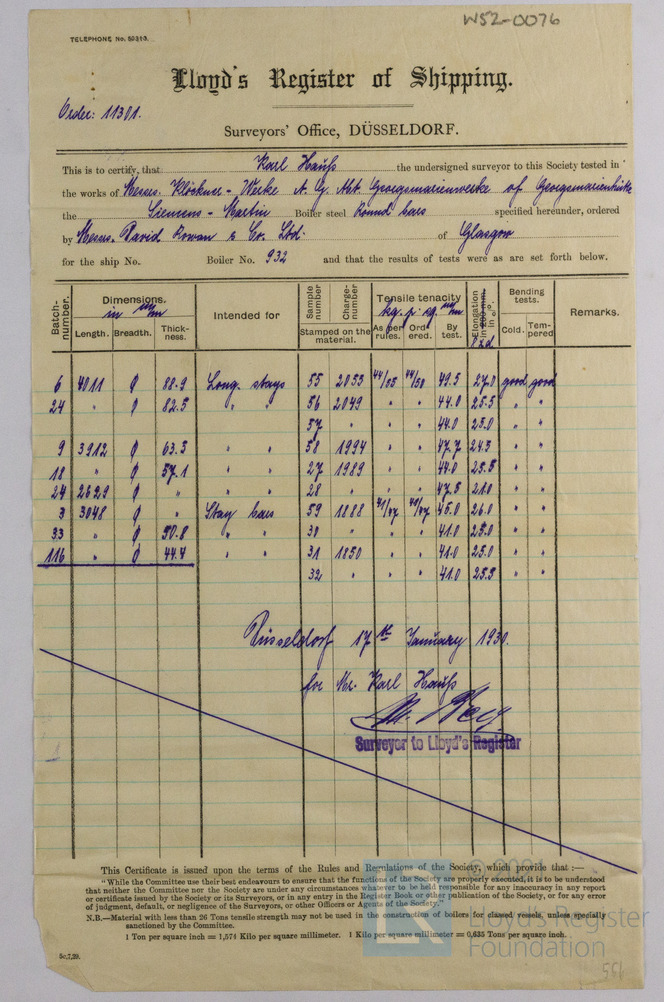 W52-0076
TELEPHONE No.
Lloyd's Register of Shipping.
Order: 11301.
Surveyors' Office, DÜSSELDORF.
This is to certify, that Karl Hauß the undersigned surveyor to this Society tested in
the works of Messrs. Klöckner-Werke A.G. Abt. Georgsmarienwerke of Georgsmarienhütte
the Siemens-Martin Boiler steel Round bars specified hereunder, ordered
by Messrs. David Rowan & Co. Ltd. of Glasgow
for the ship No. Boiler No. 932 and that the results of tests were as set forth below.
Batch-number. Dimensions. in m/m Length. Breadth. Thick-ness. Intended for Sample number Charge-number Stamped on the material. Tensile tenacity kg. p. sq. m/m As per rules. Ord-ered. By test. Elongation in 200 mm. in %. Bending tests. Cold. Tem-pered Remarks.
6 4011 φ 88.9 Long. stays 55 2053 44/55 44/50 49.5 27.0 good good
24 " φ 82.5 " " 56 2049 " " 44.0 25.5 " "
57 " " " 44.0 25.0 " "
9 3912 φ 63.5 " " 58 1994 " " 47.7 24.5 " "
18 " φ 57.1 " " 27 1989 " " 44.0 25.5 " "
24 2629 φ " " " 28 " " " 47.5 21.0 " "
3 3048 φ " Stay bars 59 1888 41/47 40/47 45.0 26.0 " "
33 " φ 50.8 " " 30 " " " 41.0 25.0 " "
116 " φ 44.4 " " 31 1850 " " 41.0 25.0 " "
32 " " " 41.0 25.5 " "
Düsseldorf 17th January 1930.
for Mr. Karl Hauß
Surveyor to Lloyd's Register
This Certificate is issued upon the terms of the Rules and Regulations of the Society, which provide that :—
"While the Committee use their best endeavours to ensure that the functions of the Society are properly executed, it is to be understood
that neither the Committee nor the Society are under any circumstances whatever to be held responsible for any inaccuracy in any report
or certificate issued by the Society or its Surveyors, or in any entry in the Register Book or other publication of the Society, or for any error
of judgment, default, or negligence of the Surveyors, or other Officers or Agents of the Society."
N.B.—Material with less than 26 Tons tensile strength may not be used in the construction of boilers for classed vessels, unless specially
sanctioned by the Committee.
1 Ton per square inch = 1,574 Kilo per square millimetre. 1 Kilo per square millimetre = 0,635 Tons per square inch.
Lloyd's Register
Foundation
5c,7,29.